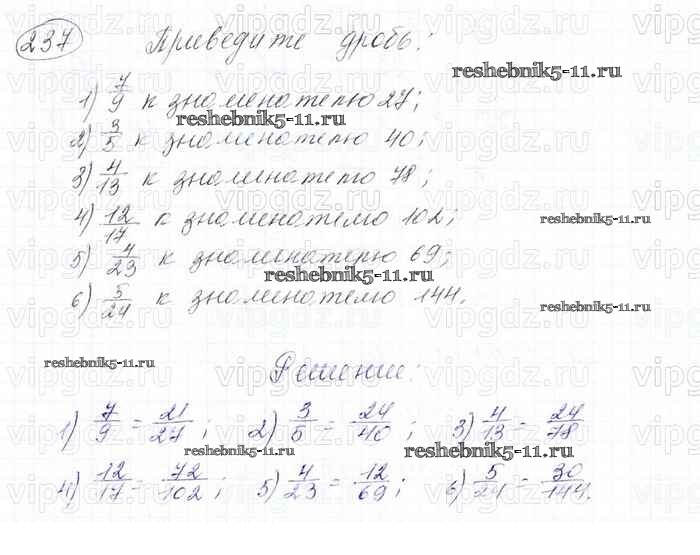 237 Приведите дробь:
1) 7/9 к знаменателю 27;
2) 3/5 к знаменателю 40;
3) 4/13 к знаменателю 78;
4) 12/17 к знаменателю 102;
5) 4/23 к знаменателю 69;
6) 5/24 к знаменателю 144.
Решение:
1) 7/9 = 21/27; 2) 3/5 = 24/40; 3) 4/13 = 24/78
4) 12/17 = 72/102; 5) 4/23 = 12/69; 6) 5/24 = 30/144.
reshebnik5-11.ru
reshebnik5-11.ru
reshebnik5-11.ru
reshebnik5-11.ru
reshebnik5-11.ru
reshebnik5-11.ru
reshebnik5-11.ru
reshebnik5-11.ru
vipgdz.ru